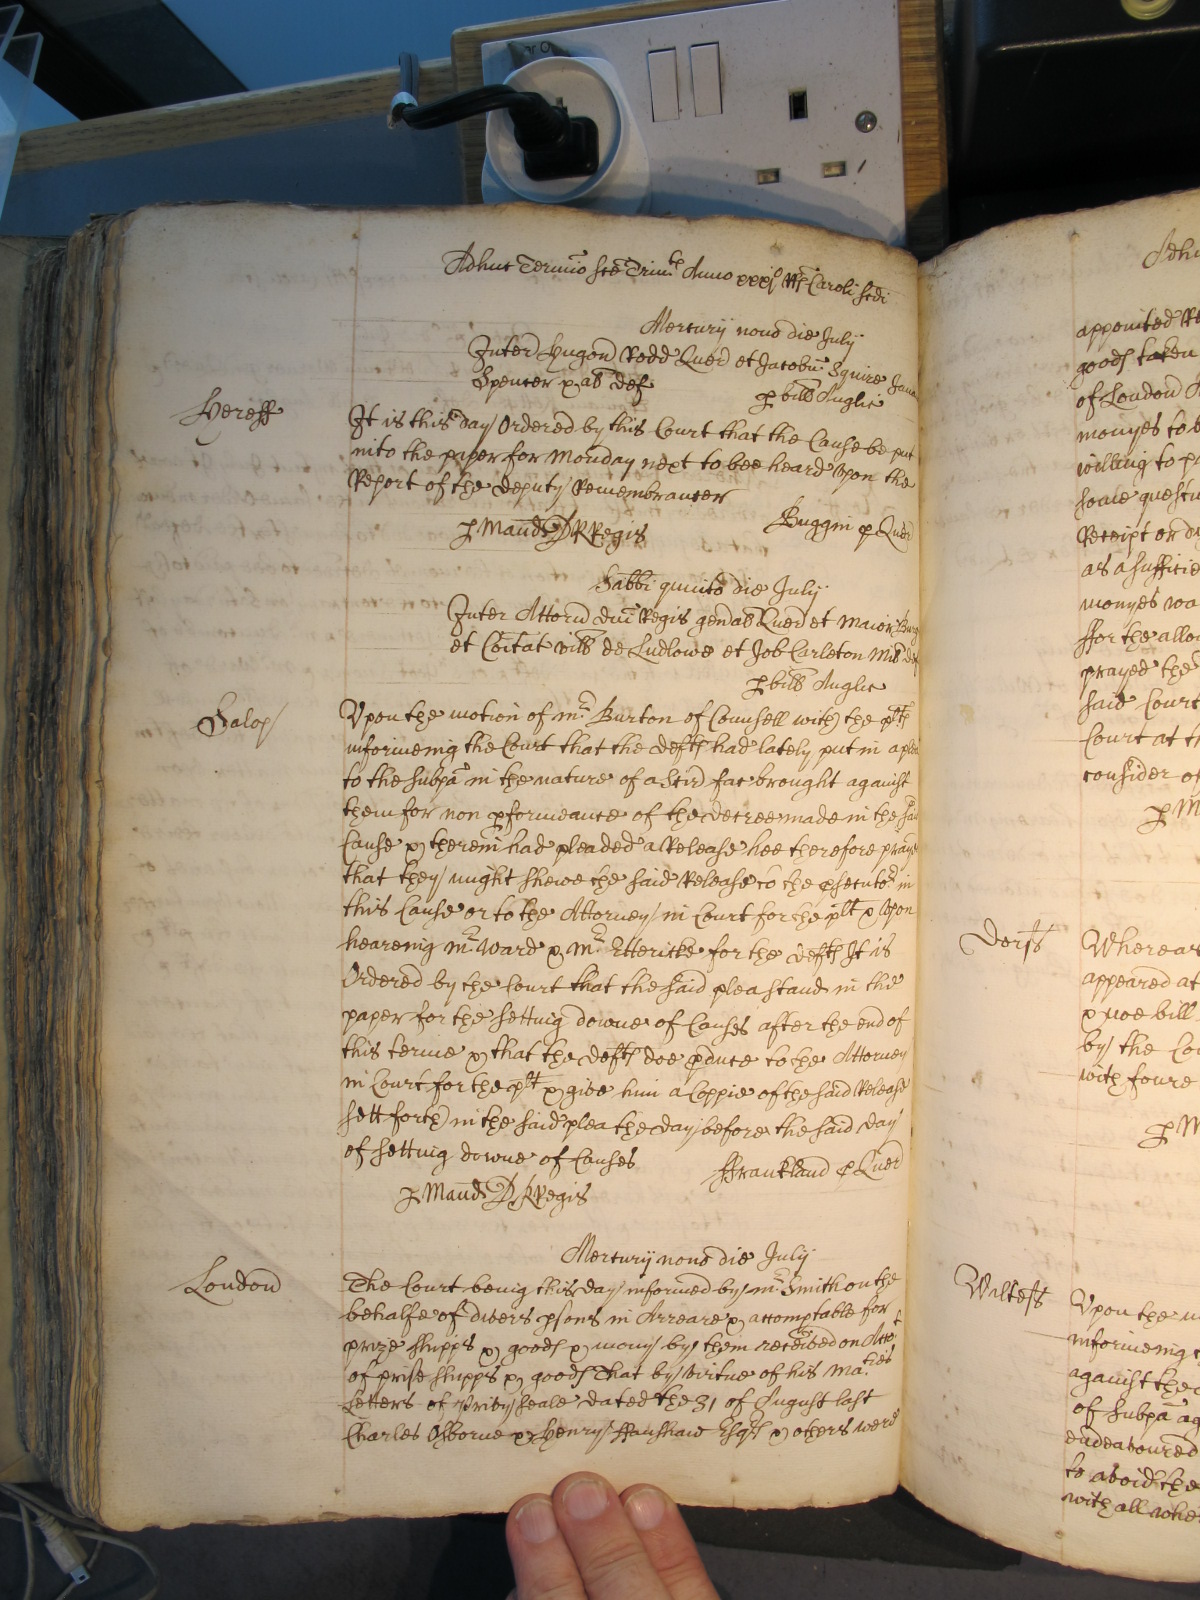 Adhuc Termio Sce Trinit Anno xxxj RRs Caroli Scdi
Mercurij nono die July
Hereff
Inter Hugon Rodd Quer et Jacobu Squire
Spencer & ab def
p bill Anglic
It is this day Ordered by this Court that the Cause be put
into the paper for Monday next to bee heard upon the
Report of the deputy Remembrancer
p Maund D R Regis
Buggin p Quer
Sabbi quinto die July
Inter Attorn Dni Regis genal Quer et Maior Burg
et Coitat vill de Ludlowe et Job Carleton Mil def
p bill Anglic
Salop
Upon the motion of mr Burton of Counsell with the plt
informeing the Court that the defts had lately put in a plea
to the Subpa in the nature of a Scir fac brought against
them for non pformeance of the decree made in the said
Cause & therein had pleaded a Release hee therefore prayed
that they might shewe the said Release to the psecutor in
this Cause or to the Attorney in Court for the plt & Upon
heareing mr Ward & mr Ettericke for the defts It is
Ordered by the Court that the said plea stand in the
paper for the setting downe of Causes after the end of
this terme & that the defts doe pduce to the Attorney
in Court for the plt & give him a Coppie of the said Release
sett forth in the said plea the day before the said day
of setting downe of Causes
Franckland p Quer
p Maund D R Regis
Mercurij nono die July
London
The Court being this day informed by mr Smith on the
behalfe of divers psons in Arreare & accomptable for
prize shipps & goods & mony by them received on Acct
of prise shipps & goods That by virtue of his Maties
Letters of privy seale dated the 31 of August last
Charles Osborne & Henry ffanshaw Esqrs & others were
appointed
goods taken
of London
monyes to
willing to
some
Receipt or
as a sufficie
monyes
ffor the
prayed the
said Court
Court at
consider of
p M
Whereas
appeared at
& noe bill
by the
with foure
p M
Upon the
informeing
against the
of Subpa
endeavoured
to avoid the
with all